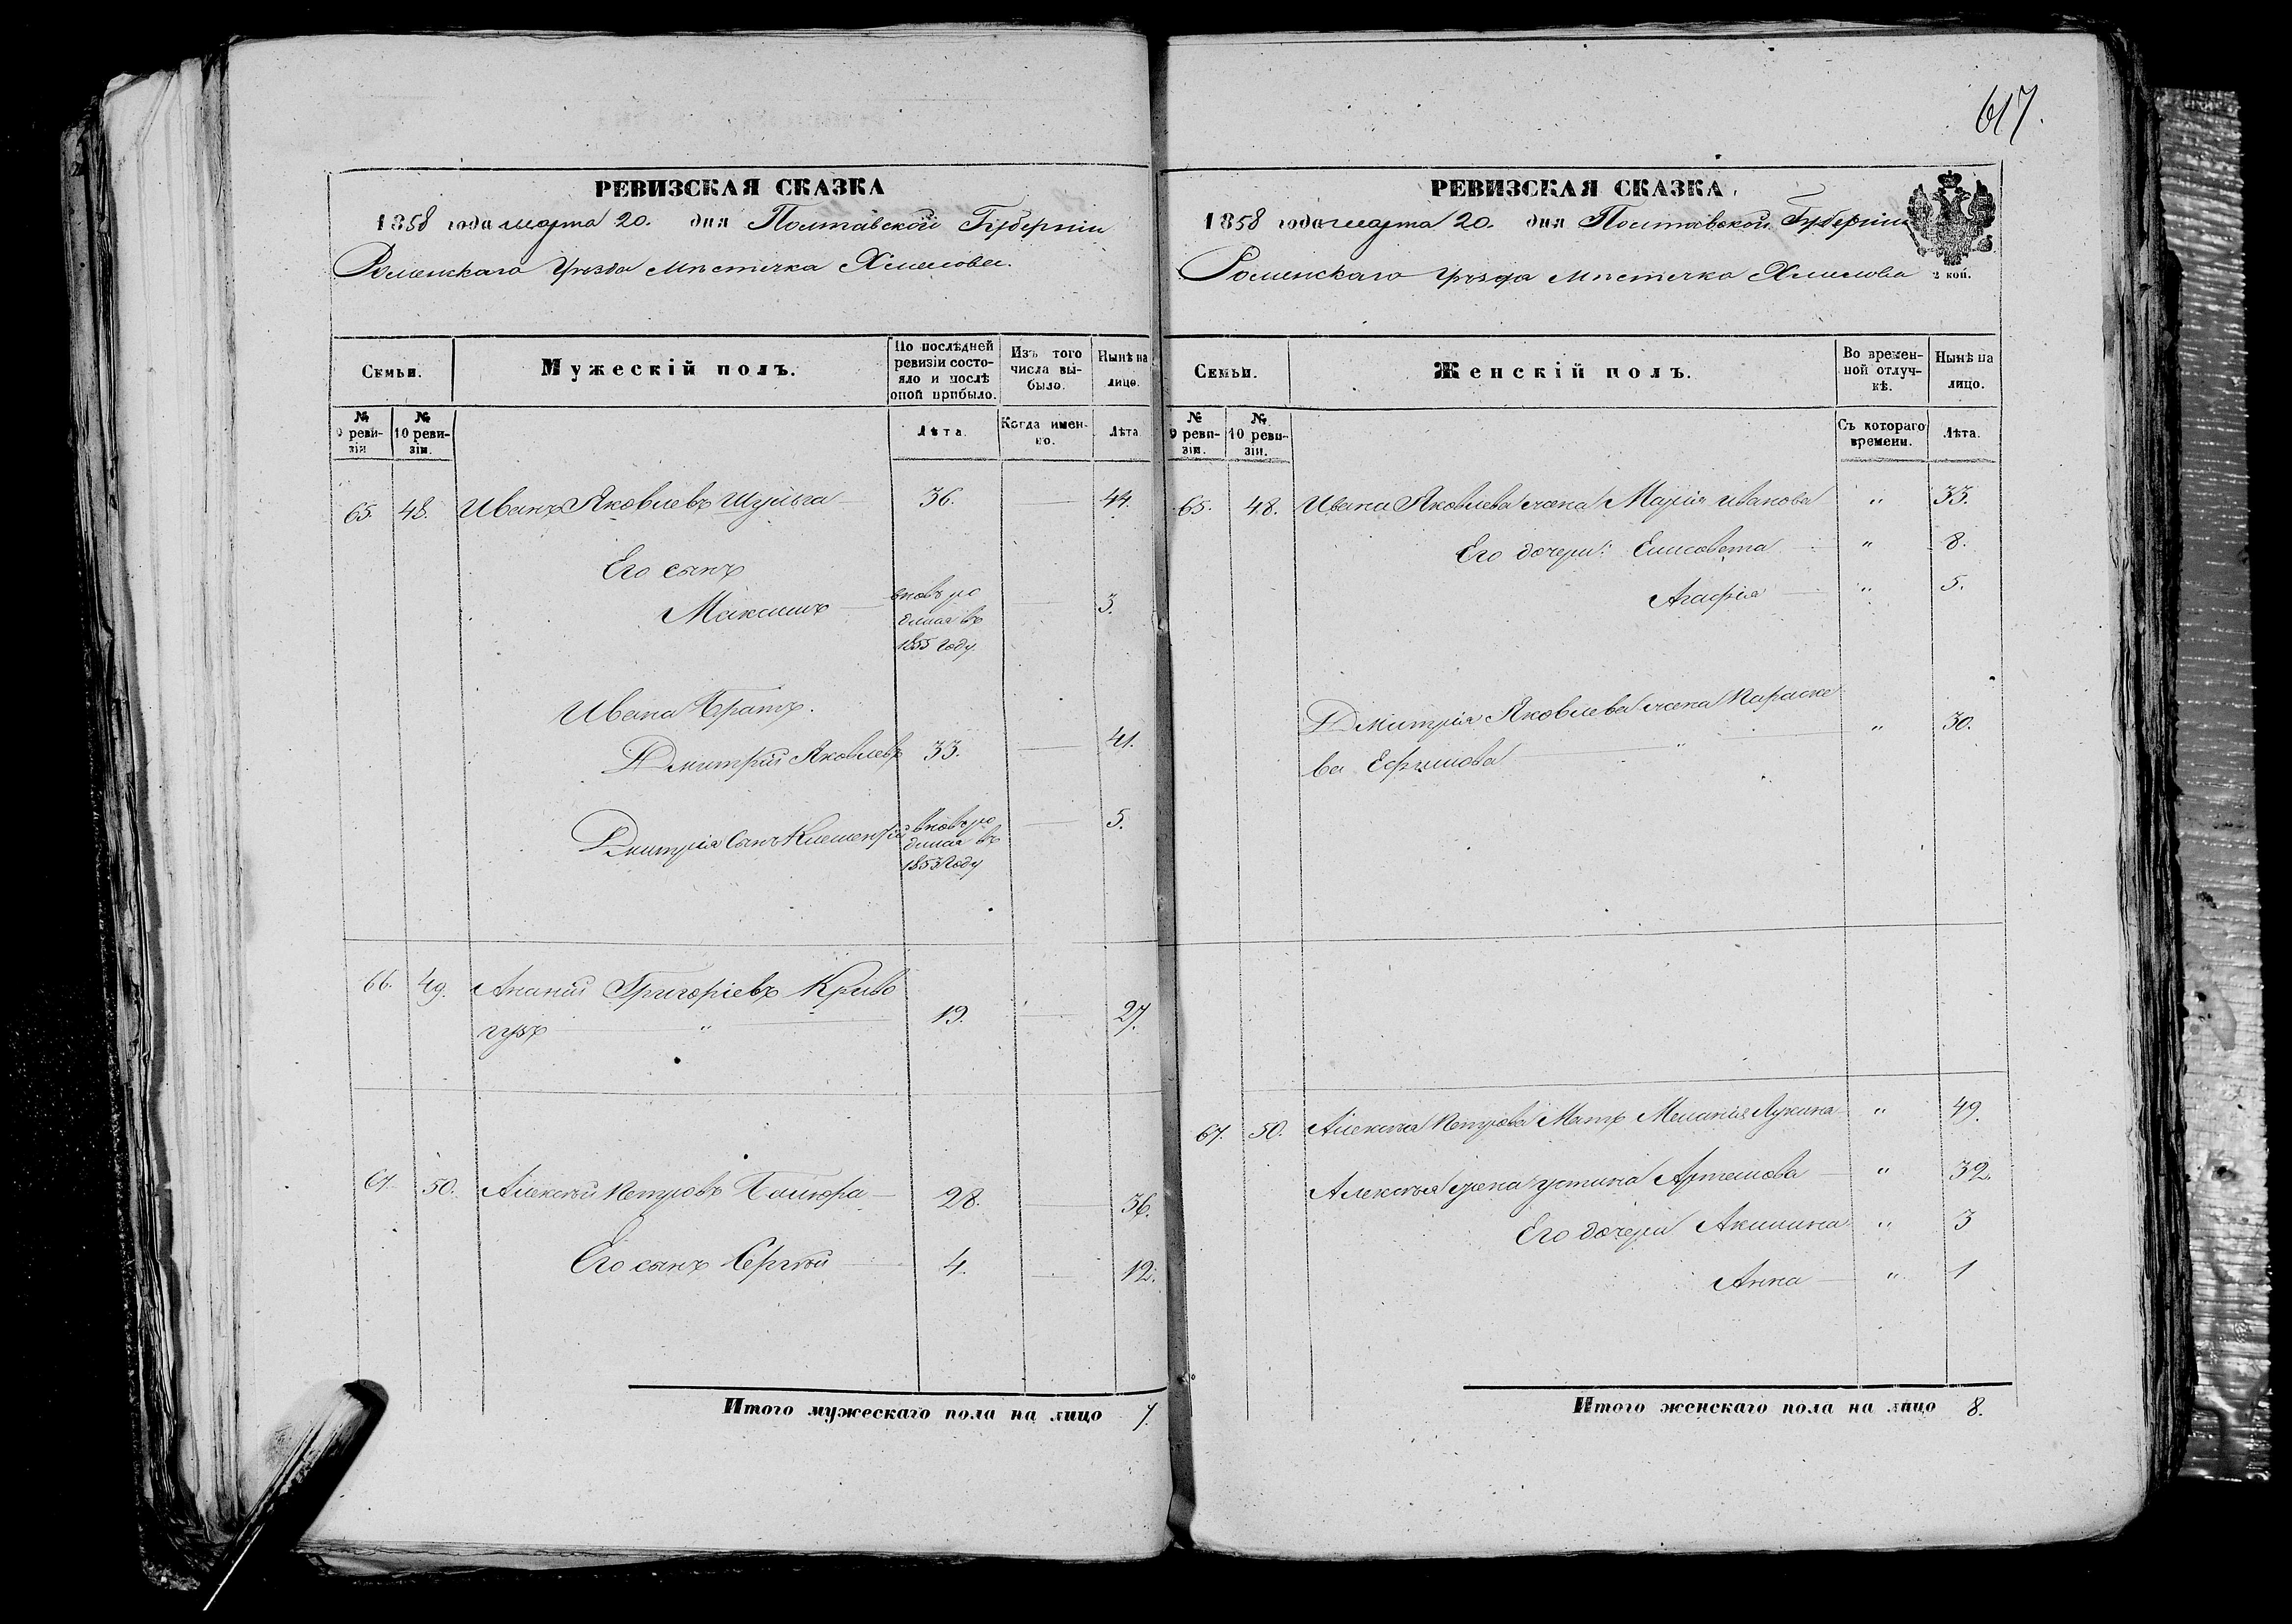 617.
РЕВИЗСКАЯ СКАЗКА
1858 года марта 20. дня Полтавской Губерніи
Роменскаго Уѣзда Мѣстечка Хмелова.
Семьи.
Мужескій полъ.
По послѣдней
ревизіи состо-
яло и послѣ
оной прибыло.
Изъ того
числа вы-
было.
Нынѣ на
лицо.
№
9 реви-
зіи
№
10 реви-
зіи.
Лѣта.
Когда имен-
но.
Лѣта.
65. 48. Иванъ Яковлевъ Шульга 36. 44.
Его сынъ
Максимъ вновь ро 3.
дился въ
1855 году.
Ивана братъ.
Дмитрій Яковлевъ 33. 41.
Дмитрія сынъ Клементій вновь ро 5.
дился въ
1853 году
66. 49. Ананій Григоріевъ Криво
гузъ " 19. 27.
67. 50. Алексѣй Петровъ 28. 36.
Его сынъ Сергѣй 4. 12.
Итого мужескаго пола на лицо 7.
РЕВИЗСКАЯ СКАЗКА
1858 года марта 20. дня Полтавской Губерніи
Роменскаго Уѣзда Мѣстечка Хмелова
2 коп.
Семьи.
Женскій полъ.
Во времен-
ной отлуч-
кѣ.
Нынѣ на
лицо.
№
9 реви-
зіи.
№
10 реви-
зіи.
Съ котораго
времени.
Лѣта.
65. 48. Ивана Яковлева жена Марія Иванова " 33.
Его дочери: Елисавета " 8.
Агафія " 5.
Дмитрія Яковлева жена Параске
ва Ефимова " " 30.
67. 50. Алексѣя Петрова Мать Меланія Лукина " 49
Алексѣя жена Устина Артемова " 32.
Его дочери Акилина " 3
Анна " 1
Итого женскаго пола на лицо 8.